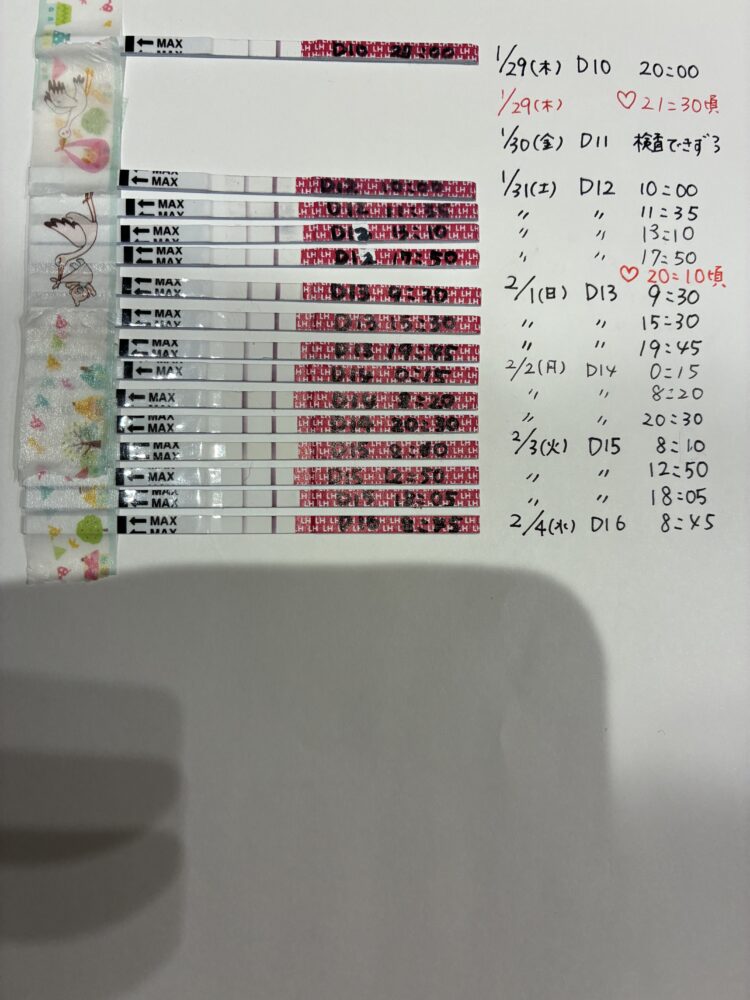 ← MAX D10 20:00 1/29(木) D10 20:00
1/29(木) ♡21:30頃
1/30(金) D11 検査できず3
← MAX D12 10:00 1/31(土) D12 10:00
← MAX D12 11:35 〃 〃 11:35
← MAX D12 13:10 〃 〃 13:10
← MAX D12 17:50 〃 〃 17:50
♡20:10頃
← MAX D13 9:20 2/1(日) D13 9:30
← MAX D13 15:30 〃 〃 15:30
← MAX D13 19:45 〃 〃 19:45
← MAX D14 0:15 2/2(月) D14 0:15
← MAX D14 8:20 〃 〃 8:20
← MAX D14 20:30 〃 〃 20:30
← MAX D15 2/3(火) D15 8:10
← MAX D15 12:50 〃 〃 12:50
← MAX D15 18:05 〃 〃 18:05
← MAX 8:45 2/4(水) D16 8:45